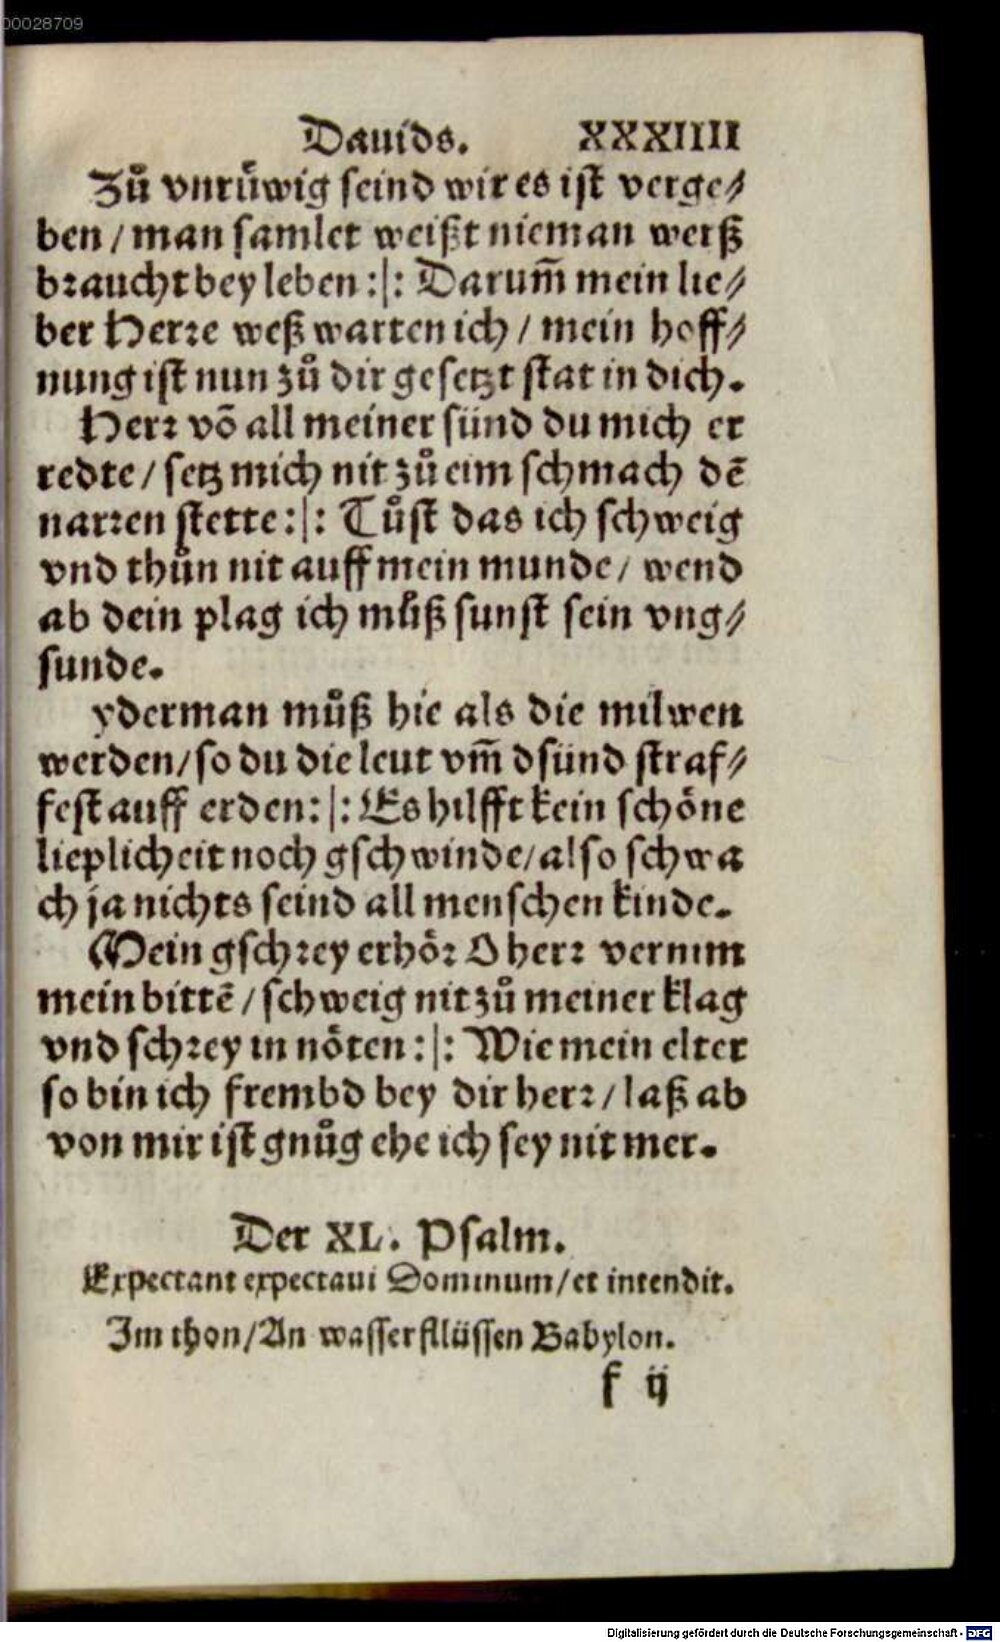 00028709
Dauids. XXXIIII
Zů vnrüwig seind wir es ist verge⸗
ben / man samlet weißt nieman werß
braucht bey leben :|: Darum̃ mein lie⸗
ber Herꝛe weß warten ich / mein hoff⸗
nung ist nun zů dir gesetzt stat in dich.
Herꝛ võ all meiner sünd du mich er
redte / setz mich nit zů eim schmach dẽ
narꝛen stette :|: Tůst das ich schweig
vnd thůn nit auff mein munde / wend
ab dein plag ich můß sunst sein vng⸗
sunde.
yderman můß hie als die milwen
werden / so du die leut vm̃ dsünd straf⸗
fest auff erden :|: Es hilfft kein schöne
lieplicheit noch gschwinde / also schwa
ch ja nichts seind all menschen kinde.
Mein gschꝛey erhöꝛ O herꝛ vernim
mein bittẽ / schweig nit zů meiner klag
vnd schꝛey in nöten :|: Wie mein elter
so bin ich frembd bey dir herꝛ / laß ab
von mir ist gnůg ehe ich sey nit mer.
Der XL. Psalm.
Expectant expectaui Dominum / et intendit.
Im thon / An wasserflüssen Babylon.
f ij
Digitalisierung gefördert durch die Deutsche Forschungsgemeinschaft - DFG